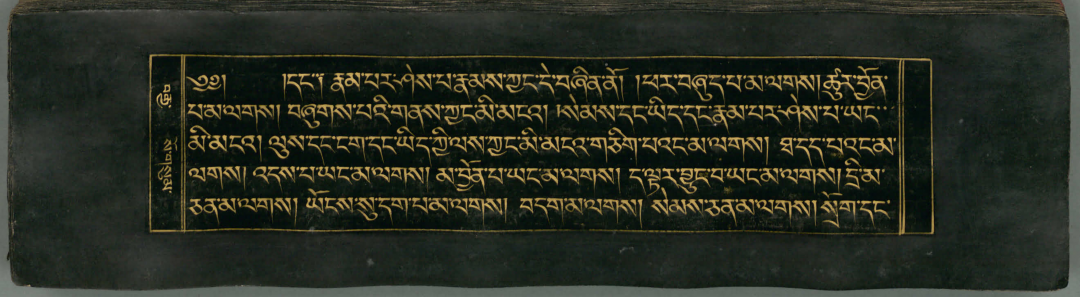 ༄༅། །དང་། རྣམ་པར་ཤེས་པ་རྣམས་ཀྱང་དེ་བཞིན་ནོ། །ཕར་བཞུད་པ་མ་ལགས། ཚུར་བྱོན་
པ་མ་ལགས། བཞུགས་པའི་གནས་ཀྱང་མི་མངའ། །སེམས་དང་ཡིད་དང་རྣམ་པར་ཤེས་པ་ཡང་
མི་མངའ། ལུས་དང་ངག་དང་ཡིད་ཀྱི་ལས་ཀྱང་མི་མངའ་གཅིག་པའང་མ་ལགས། ཐ་དད་པའང་མ་
ལགས། འདས་པ་ཡང་མ་ལགས། མ་བྱོན་པ་ཡང་མ་ལགས། ད་ལྟར་བྱུང་བ་ཡང་མ་ལགས། དྲི་མ་
ཅན་མ་ལགས། ཡོངས་སུ་དག་པ་མ་ལགས། བདག་མ་ལགས། སེམས་ཅན་མ་ལགས། སྲོག་དང་